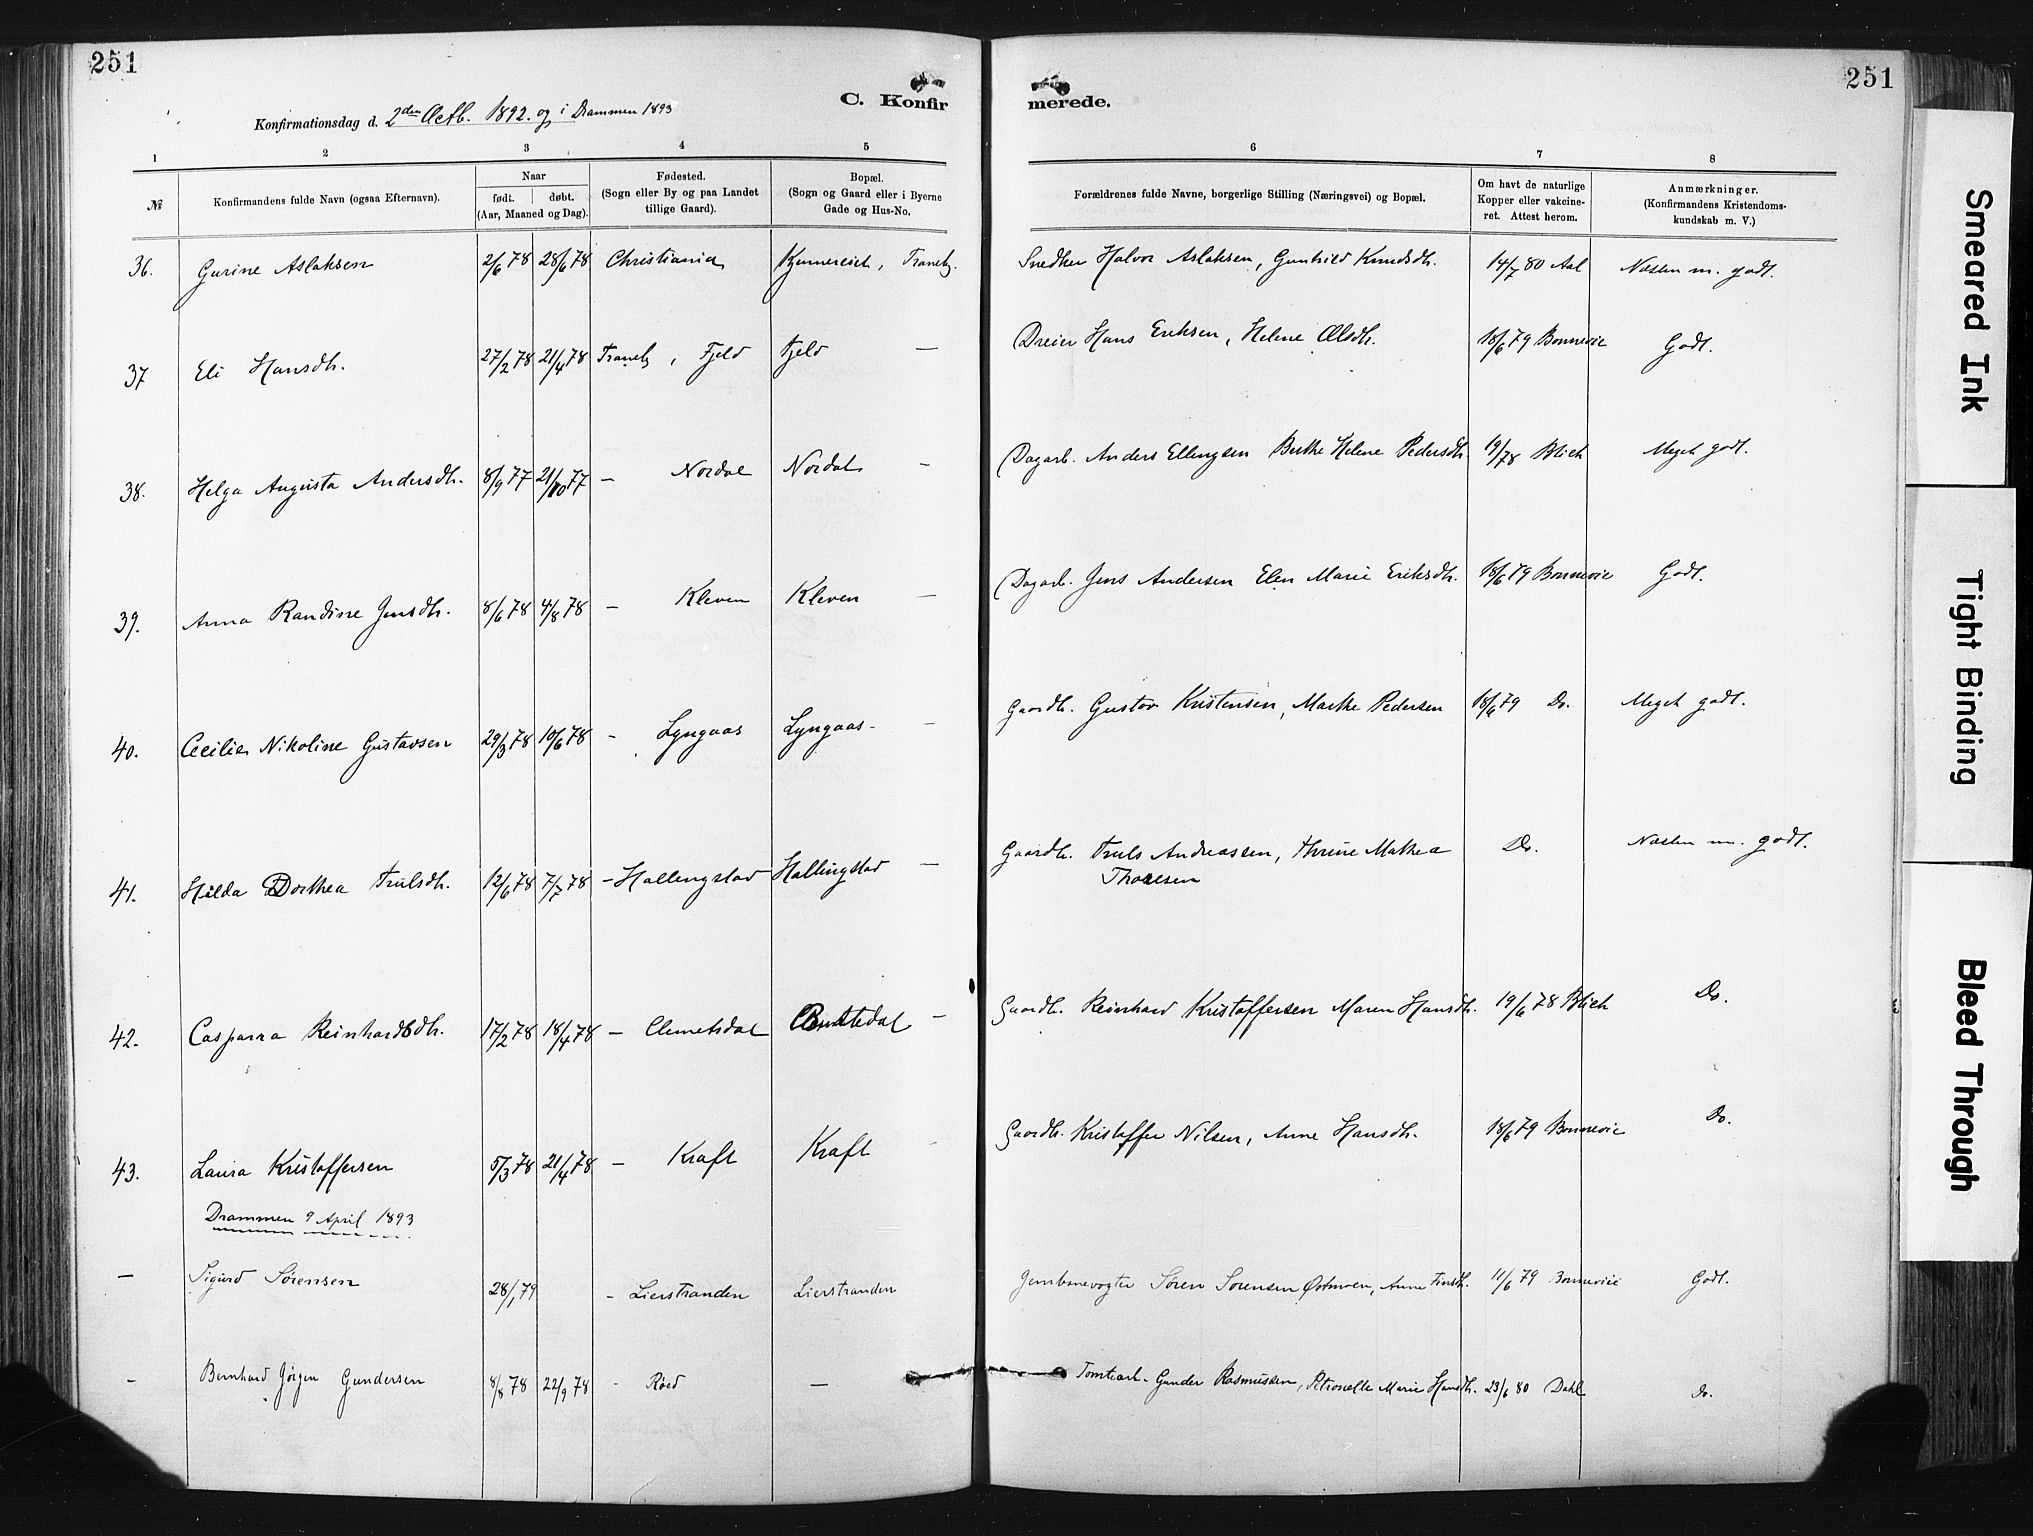 251
251
C. Konfir merede.
Konfirmationsdag d. 2den Octb. 1892. og i Drammen 1893
1 2 3 4 5 6 7 8
№ Konfirmandens fulde Navn (ogsaa Efternavn). Naar født. døbt. (Aar, Maaned og Dag). Fødested. (Sogn eller By og paa Landet tillige Gaard). Bopæl. (Sogn og Gaard eller i Byerne Gade og Hus-No. Forældrenes fulde Navne, borgerlige Stilling (Næringsvei) og Bopæl. Om havt de naturlige Kopper eller vakcineret. Attest herom. Anmærkninger. (Konfirmandens Kristendomskundskab m. V.)
36. Gurine Aslaksen 2/6 78 28/6 78 Christiania Traneby. Snedker Halvor Aslaksen, Gunhild Knudsdh. 14/7 80 Aal Næsten m. godt.
37 Eli Hansdh. 27/2 78 21/4 78 Traneby, Fjeld Fjeld — Dreier Hans Eriksen, Helene Olsdh. 18/6 79 Bonnevie Godt.
38. Helga Augusta Andersdh. 8/9 77 21/10 77 — Nordal Nordal — Dagarb. Anders Ellingsen Berthe Helene Pedersdh. 19/78 Blich Meget godt.
39. Anna Randine Jensdh. 8/6 78 4/8 78 — Kleven Kleven — Dagarb. Jens Andersen Elen Marie Eriksdh. 18/6 79 Bonnevie Godt.
40. Cecilie Nikoline Gustavsen 29/3 78 10/6 78 - Lyngaas Lyngaas - — Gaardb. Gustav Kristensen, Marthe Pedersen 18/6 79 Do. Meget godt.
41. Hilda Dorthea Trulsdh. 12/6 78 7/7 78 - Hallingstad Hallingstad — Gaardb. Truls Andreassen, Thrine Mathea Do. Næsten m. godt.
Thoresen
42. Casparra Reinhardtsdh. 17/2 78 18/4 78 — Clemetsdal Clemetsdal — Gaardb. Reinhard Kristoffersen Maren Hansdh. 19/6 78 Blich Do.
43. Laura Kristoffersen 5/3 78 21/4 78 — Kraft Kraft Gaardb. Kristoffer Nilsen, Anne Hansdh. 18/6 79 Bonnevie Do.
Drammen 9 April 1893
— Sigurd Sørensen 28/1 79 - Lierstranden Lierstranden Jernbanevogter Søren Sørensen Østmoen, Anne Finsdh. 11/6 79 Bonnevie Godt.
- Bernhard Jørgen Gundersen 8/8 78 22/9 78 - Røed — Tomtearb. Gunder Rasmussen, Petronelle Marie Hansdh. 23/6 80 Dahl Do.
Smeared Ink
Tight Binding
Bleed Through